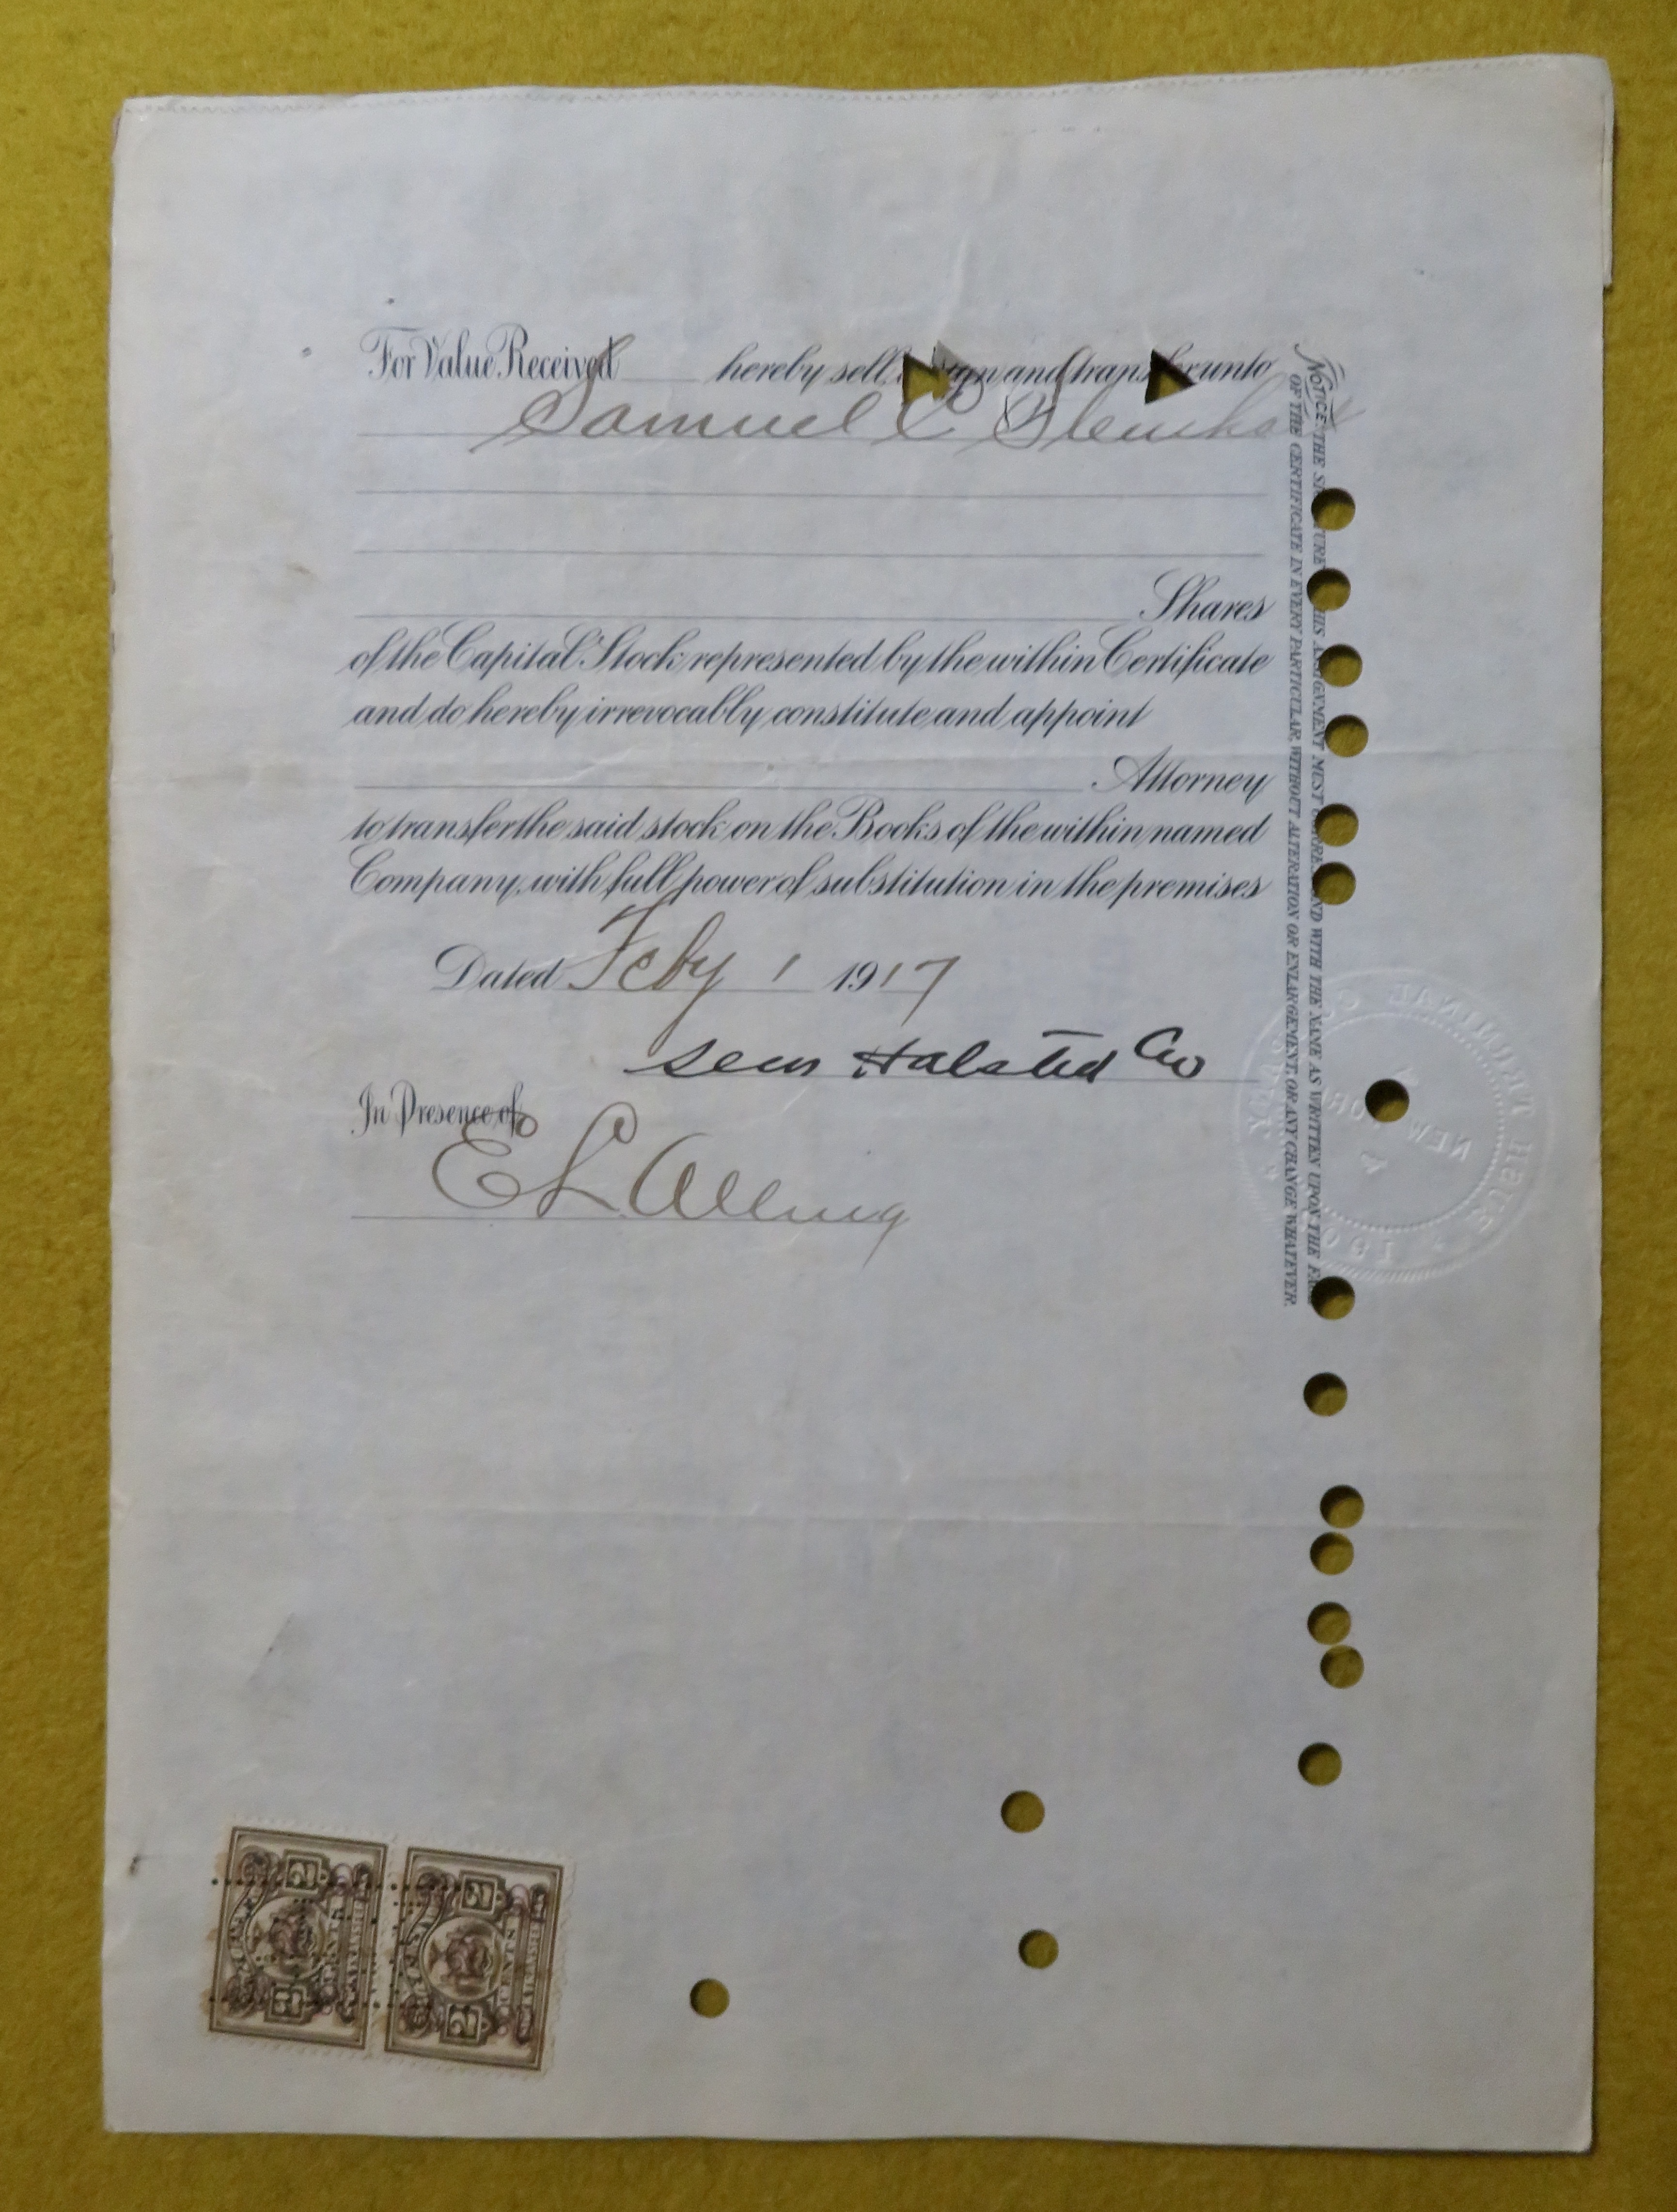 For Value Received hereby sell, assign and transfer unto
Samuel C
Shares
of the Capital Stock represented by the within Certificate
and do hereby irrevocably constitute and appoint
Attorney
to transfer the said stock on the Books of the within named
Company, with full power of substitution in the premises
Dated Feby 1 1917
Halsted Co
In Presence of
E L Alling
NOTICE: THE SIGNATURE THIS ASSIGNMENT MUST CORRESPOND WITH THE NAME AS WRITTEN UPON THE FACE
OF THE CERTIFICATE IN EVERY PARTICULAR, WITHOUT ALTERATION OR ENLARGEMENT, OR ANY CHANGE WHATEVER.
NEW YORK
2 2
CENTS
2 2
CENTS